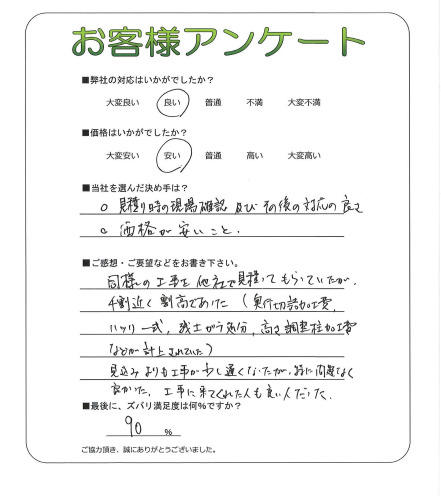 お客様アンケート
■弊社の対応はいかがでしたか？
大変良い 良い 普通 不満 大変不満
■価格はいかがでしたか？
大変安い 安い 普通 高い 大変高い
■当社を選んだ決め手は？
○ 見積り時の現場確認 及び その後の対応の良さ
○ 価格が安いこと.
■ご感想・ご要望などをお書き下さい。
同様の工事を他社で見積ってもらっていたが、
4割近く割高であった（奥行切詰加工費、
ハツリ一式, 残土がら処分, 高さ調整柱加工費
などが計上されていた）
見込みよりも工事が少し遅くなったが、特に問題なく
良かった. 工事に来てくれた人も良い人だった.
■最後に、ズバリ満足度は何%ですか？
90 %
ご協力頂き、誠にありがとうございました。